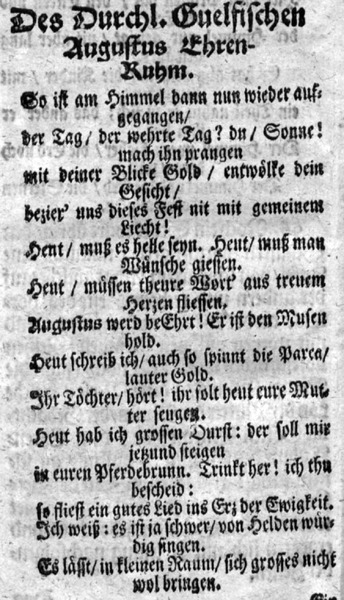 Des Durchl. Guelfischen
Augustus Ehren-
Ruhm.
So ist am Himmel dann nun wieder auf-
gegangen/
der Tag/ der wehrte Tag? du/ Sonne!
mach ihn prangen
mit deiner Blicke Gold/ entwölke dein
Gesicht/
bezier' uns dieses Fest nit mit gemeinem
Liecht!
Heut/ muß es helle seyn. Heut/ muß man
Wünsche giessen.
Heut/ müssen theure Wort' aus treuem
Herzen fliessen.
Augustus werd beEhrt! Er ist den Musen
hold.
Heut schreib ich/ auch so spinnt die Parca/
lauter Gold.
Ihr Töchter/ hört! ihr solt heut eure Mut-
ter seugen.
Heut hab ich grossen Durst: der soll mir
jetzund steigen
in euren Pferdebrunn. Trinkt her! ich thu
bescheid:
so fliest ein gutes Lied ins Erz der Ewigkeit.
Ich weiß: es ist ja schwer/ von Helden wür-
dig singen.
Es lässt/ in kleinen Raum/ sich grosses nicht
wol bringen.